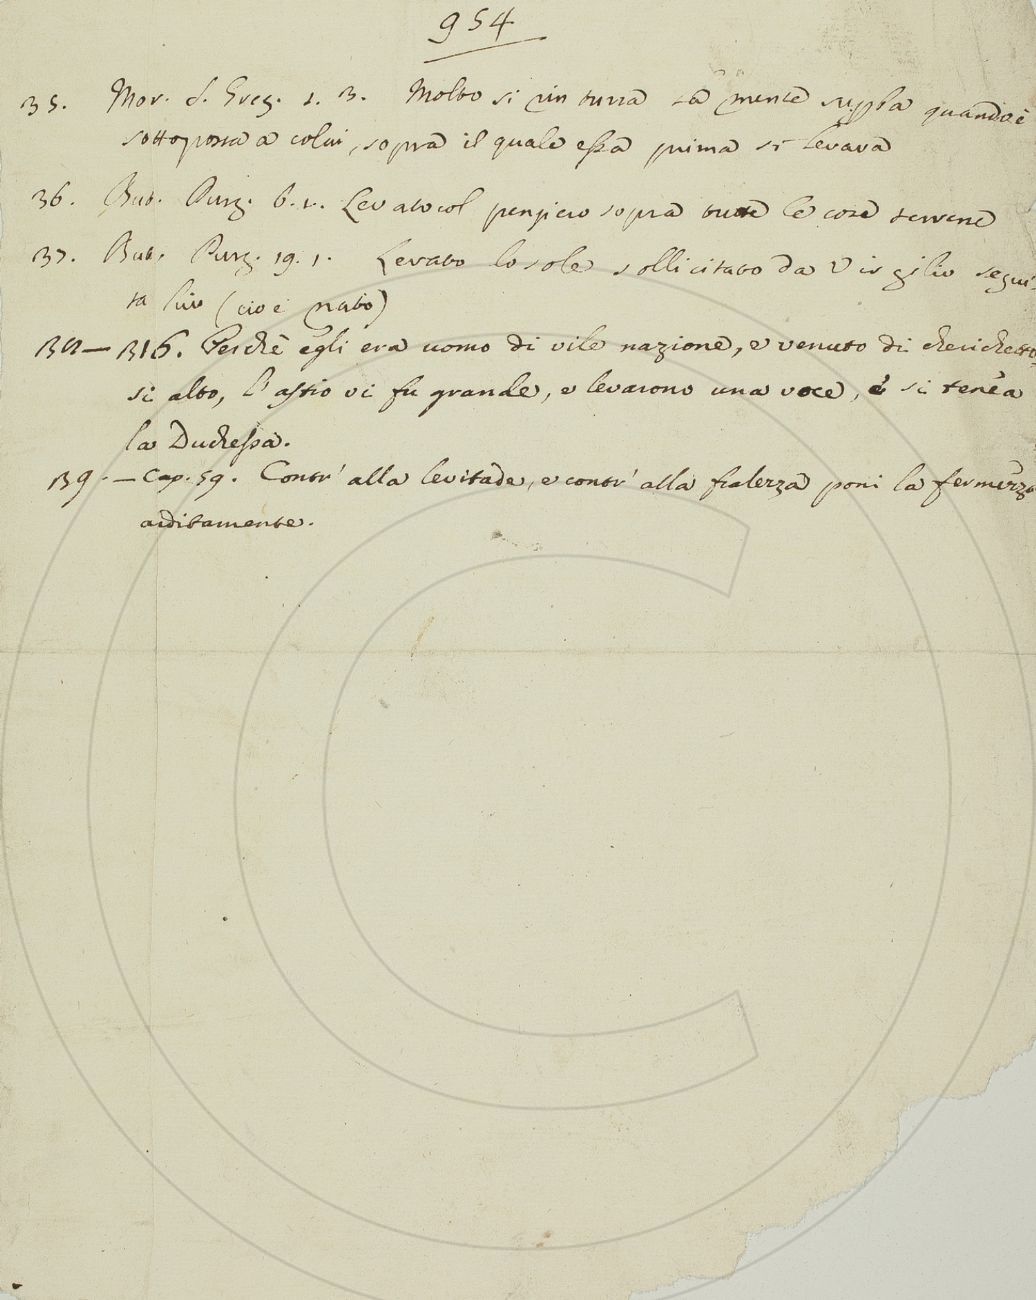 954
35. Mor. S. Greg. 1. 3. Molto si rin turra la mente quando è
sottoposta a colui, sopra il quale essa prima si levava
36. But. Purg. 6. 1. Levato col pensiero sopra tutte le cose terrene
37. But. Purg. 19. 1. Levato lo sole sollicitato da Virgilio segui-
ta lui (cioè nato)
38 — 316. Perchè egli era uomo di vile nazione, e venuto di
si alto, l'astio vi fu grande, e levarono una voce, e si tenea
la Duchessa.
39. — Cap. 59. Contr' alla levitade, e contr' alla fralezza poni la fermezza
arditamente.